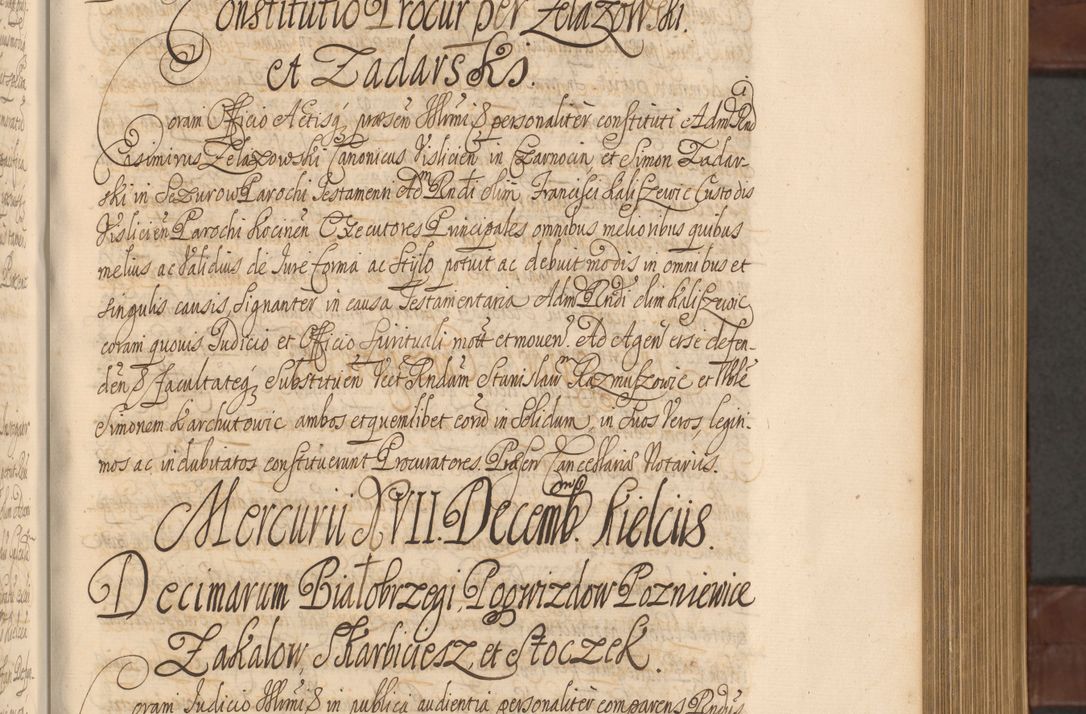 Constitutio Procur per Zelazowski.
et Zadarski.
Coram Officio Actisq praesen Illrmi D personaliter constituti Adm Rndi
Casimirus Zelazowski Canonicus Vislicien in Czarnocin et Simon Zadar-
ski in Sezurow Parochi Testamenti Adm Rndi olim Francisci Kaliszewic Custodis
Vislicien Parochi Kocinen Executores Principales omnibus melioribus quibus
melius ac validius de Jure forma ac stylo potuit ac debuit modis in omnibus et
singulis causis, signanter in causa Testamentaria Adm Rndi olim Kaliszewic
coram quovis Judicio et Officio Spirituali mott et moven. Ad Agen erse defen-
den D facultateq Substituen Vcet Rndum Stanislaum Razmuszowic et Nble
Simonem Karchutowic ambos et quemlibet eoru in solidum, in suos veros, legiti-
mos ac indubitatos constituerunt Procuratores. Praesen Cancellariae Notarius.
Mercurii XVII. Decemb. Kielciis.
Decimarum Białobrzegi, Pogwizdow Pozniewice
Zakalow, Skarbiciesz, et Stoczek.
Coram Judicio Illrmi D in publica audientia personaliter comparens Rndus